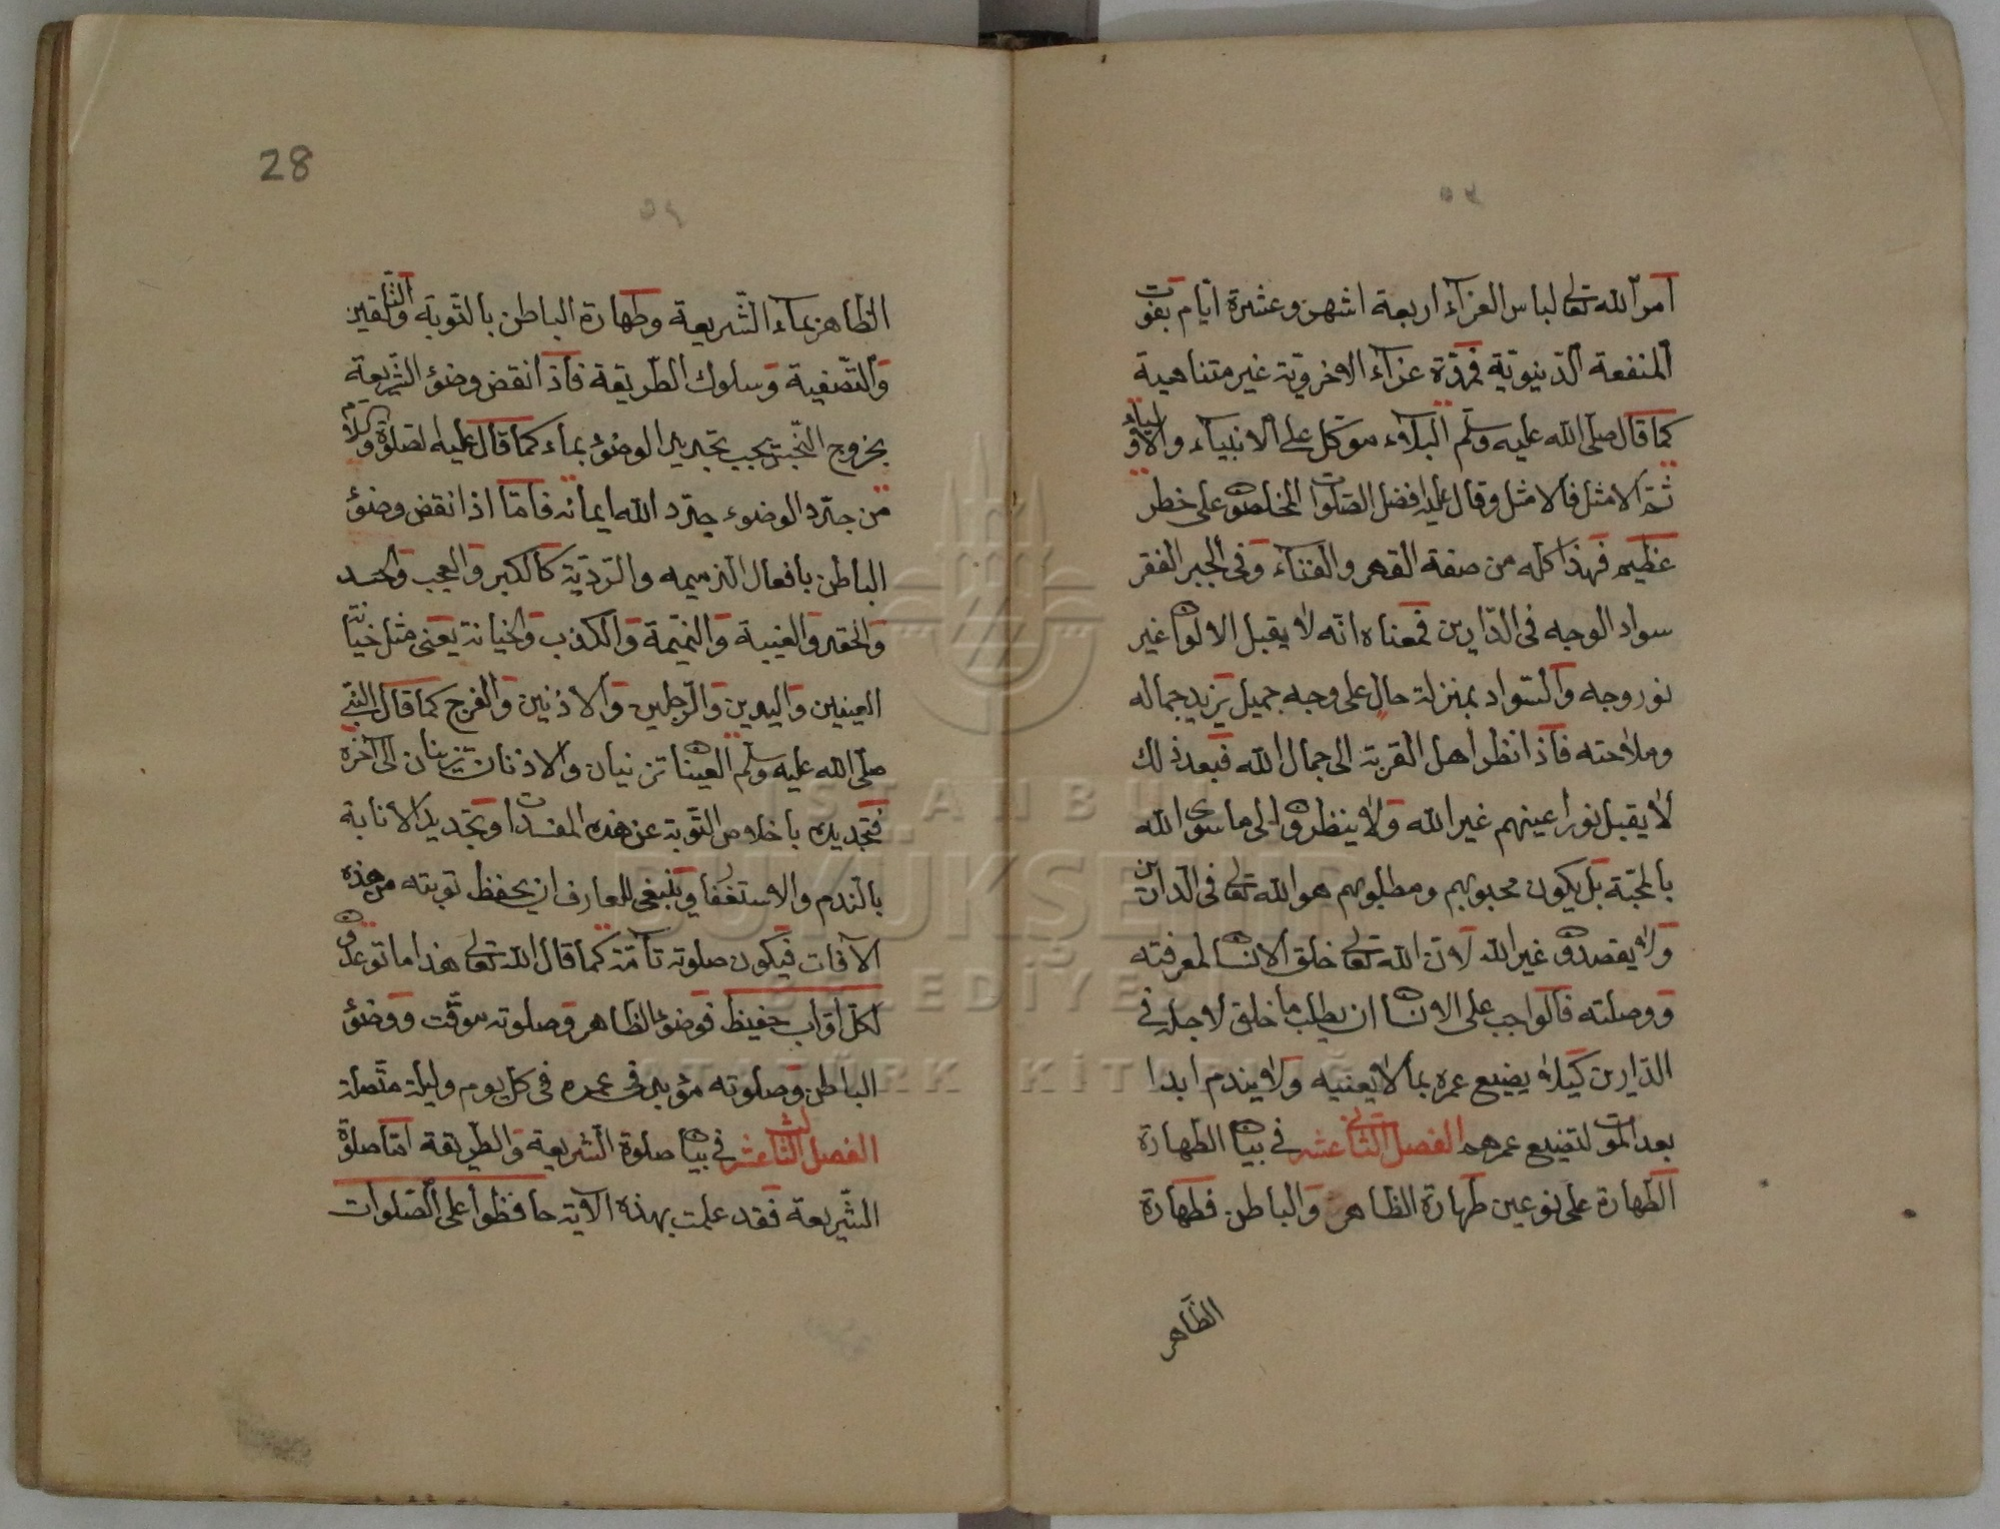 امر الله تعالى لباس العزاء اربعة اشهر وعشرة ايام بفوت
المنفعة الدنيوية فمدة عزاء الاخروية غير متناهية
كما قال صلى الله عليه وسلم البلاء موكل على الانبياء والاولياء
ثم الامثل فالامثل وقال عليه افضل الصلوات المخلصون على خطر
عظيم فهذا كله من صفة القهر والفناء وفى الخبر الفقر
سواد الوجه فى الدارين فمعناه انه لا يقبل الالوان غير
نور وجه والسواد بمنزلة خال على وجه جميل يزيد جماله
وملاحته فاذا نظر اهل القربة الى جمال الله فبعد ذلك
لا يقبل نور اعينهم غير الله ولا ينظرون الى ما سوى الله
بالمحبة بل يكون محبوبهم ومطلوبهم هو الله تعالى فى الدارين
ولا يقصدون غير الله لان الله تعالى خلق الانسان لمعرفته
ووصلته فالواجب على الانسان ان يطلب ما خلق لاجله فى
الدارين كيلا يضيع عمره بما لا يعنيه ولا يندم ابدا
بعد الموت لتضيع عمرهم الفصل الثانى عشر فى بيان الطهارة
الطهارة على نوعين طهارة الظاهر والباطن فطهارة
الظاهر
28
الظاهر بماء الشريعة وطهارة الباطن بالتوبة والتلقين
والتصفية وسلوك الطريقة فاذا انقض وضؤ الشريعة
بخروج النجس يجب تجديد الوضؤ بماء كما قال عليه الصلوة والسلام
من جدد الوضوء جدد الله ايمانه فاما اذا انقض وضؤ
الباطن بافعال الذميمه والردية كالكبر والعجب والحسد
والحقد والغيبة والنميمة والكذب والخيانة يعنى مثل خيانة
العينين واليدين والرجلين والاذنين والفرج كما قال النبى
صلى الله عليه وسلم العينان تزنيان والاذنان تزنيان الى آخره
فتجديده باخلاص التوبة عن هذه المفسدات وبتجديد الانابة
بالندم والاستغفار وينبغى للعارف ان يحفظ توبته من هذه
الآفات فيكون صلوته تامة كما قال الله تعالى هذا ما توعدون
لكل اواب حفيظ فوضؤ الظاهر وصلوته موقت ووضؤ
الباطن وصلوته مؤبد فى عمره فى كل يوم وليلة متصلة
الفصل الثالث عشر فى بيان صلوة الشريعة والطريقة اما صلوة
الشريعة فقد علمت بهذه الآية حافظوا على الصلوات